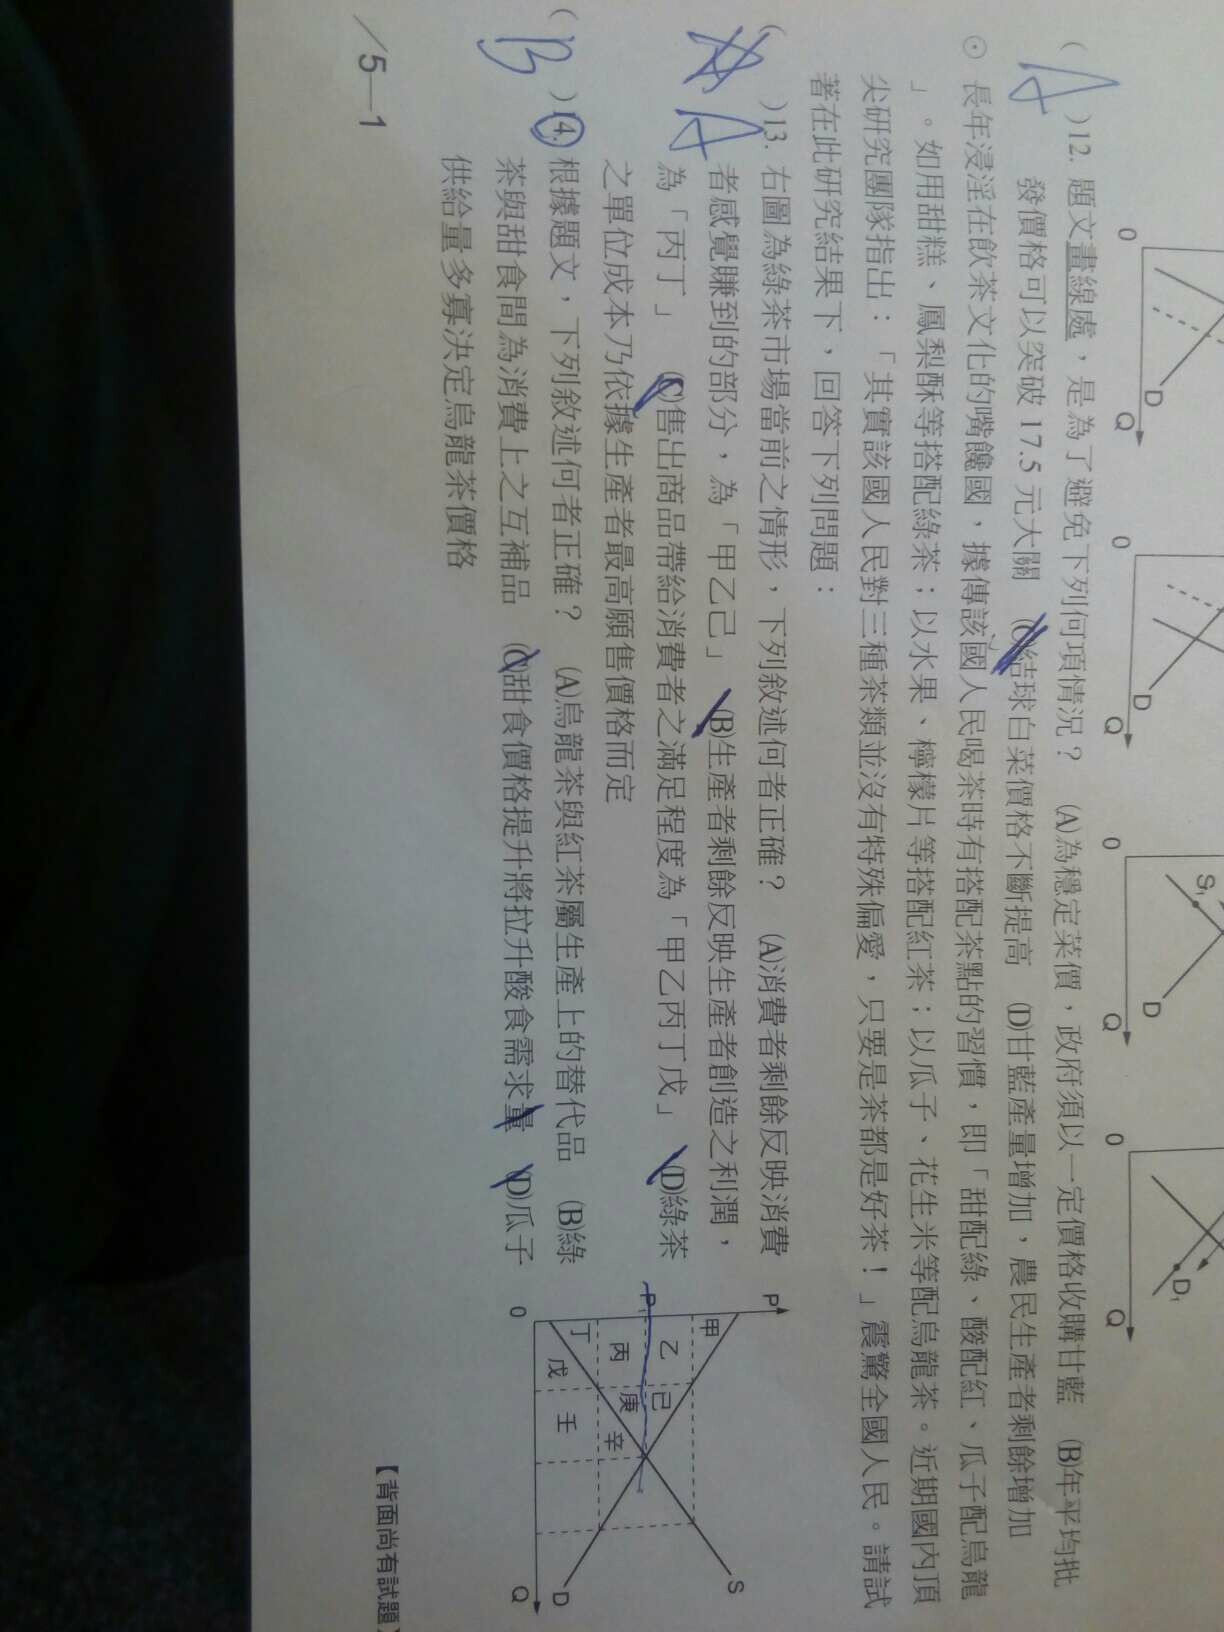 0 D Q 0 D Q 0 S₁ D Q 0 D₁ Q
( A )12. 題文畫線處，是為了避免下列何項情況？ (A)為穩定菜價，政府須以一定價格收購甘藍 (B)年平均批
發價格可以突破 17.5 元大關 (C)結球白菜價格不斷提高 (D)甘藍產量增加，農民生產者剩餘增加
⊙ 長年浸淫在飲茶文化的嘴饞國，據傳該國人民喝茶時有搭配茶點的習慣，即「甜配綠、酸配紅、瓜子配烏龍
」。如用甜糕、鳳梨酥等搭配綠茶；以水果、檸檬片等搭配紅茶；以瓜子、花生米等配烏龍茶。近期國內頂
尖研究團隊指出：「其實該國人民對三種茶類並沒有特殊偏愛，只要是茶都是好茶！」震驚全國人民。請試
著在此研究結果下，回答下列問題：
( A )13. 右圖為綠茶市場當前之情形，下列敘述何者正確？ (A)消費者剩餘反映消費
者感覺賺到的部分，為「甲乙己」 (B)生產者剩餘反映生產者創造之利潤，
為「丙丁」 (C)售出商品帶給消費者之滿足程度為「甲乙丙丁戊」 (D)綠茶
之單位成本乃依據生產者最高願售價格而定
( B )14. 根據題文，下列敘述何者正確？ (A)烏龍茶與紅茶屬生產上的替代品 (B)綠
茶與甜食間為消費上之互補品 (C)甜食價格提升將拉升酸食需求量 (D)瓜子
供給量多寡決定烏龍茶價格
P
甲
S
乙 己
P₁
丙 庚 辛
丁
戊 壬
D
0 Q
/5—1
【背面尚有試題】